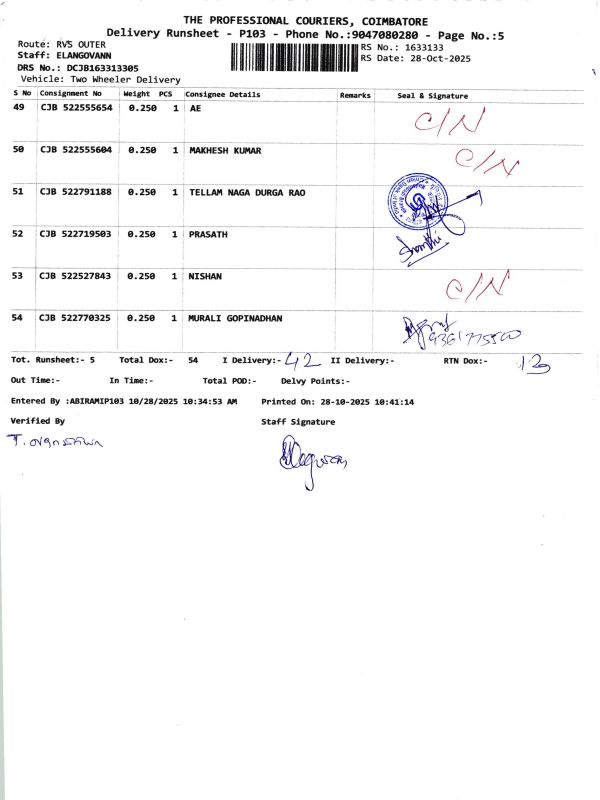 THE PROFESSIONAL COURIERS, COIMBATORE
Delivery Runsheet - P103 - Phone No.:9047080280 - Page No.:5
Route: RVS OUTER
RS No.: 1633133
Staff: ELANGOVANN
RS Date: 28-Oct-2025
DRS No.: DCJB163313305
Vehicle: Two Wheeler Delivery
S No Consignment No Weight PCS Consignee Details Remarks Seal & Signature
49 CJB 522555654 0.250 1 AE C/N
50 CJB 522555604 0.250 1 MAKHESH KUMAR C/N
51 CJB 522791188 0.250 1 TELLAM NAGA DURGA RAO
52 CJB 522719503 0.250 1 PRASATH
53 CJB 522527843 0.250 1 NISHAN C/N
54 CJB 522770325 0.250 1 MURALI GOPINADHAN
Tot. Runsheet:- 5 Total Dox:- 54 I Delivery:- 42 II Delivery:- RTN Dox:- 13
Out Time:- In Time:- Total POD:- Delvy Points:-
Entered By :ABIRAMIP103 10/28/2025 10:34:53 AM Printed On: 28-10-2025 10:41:14
Verified By Staff Signature